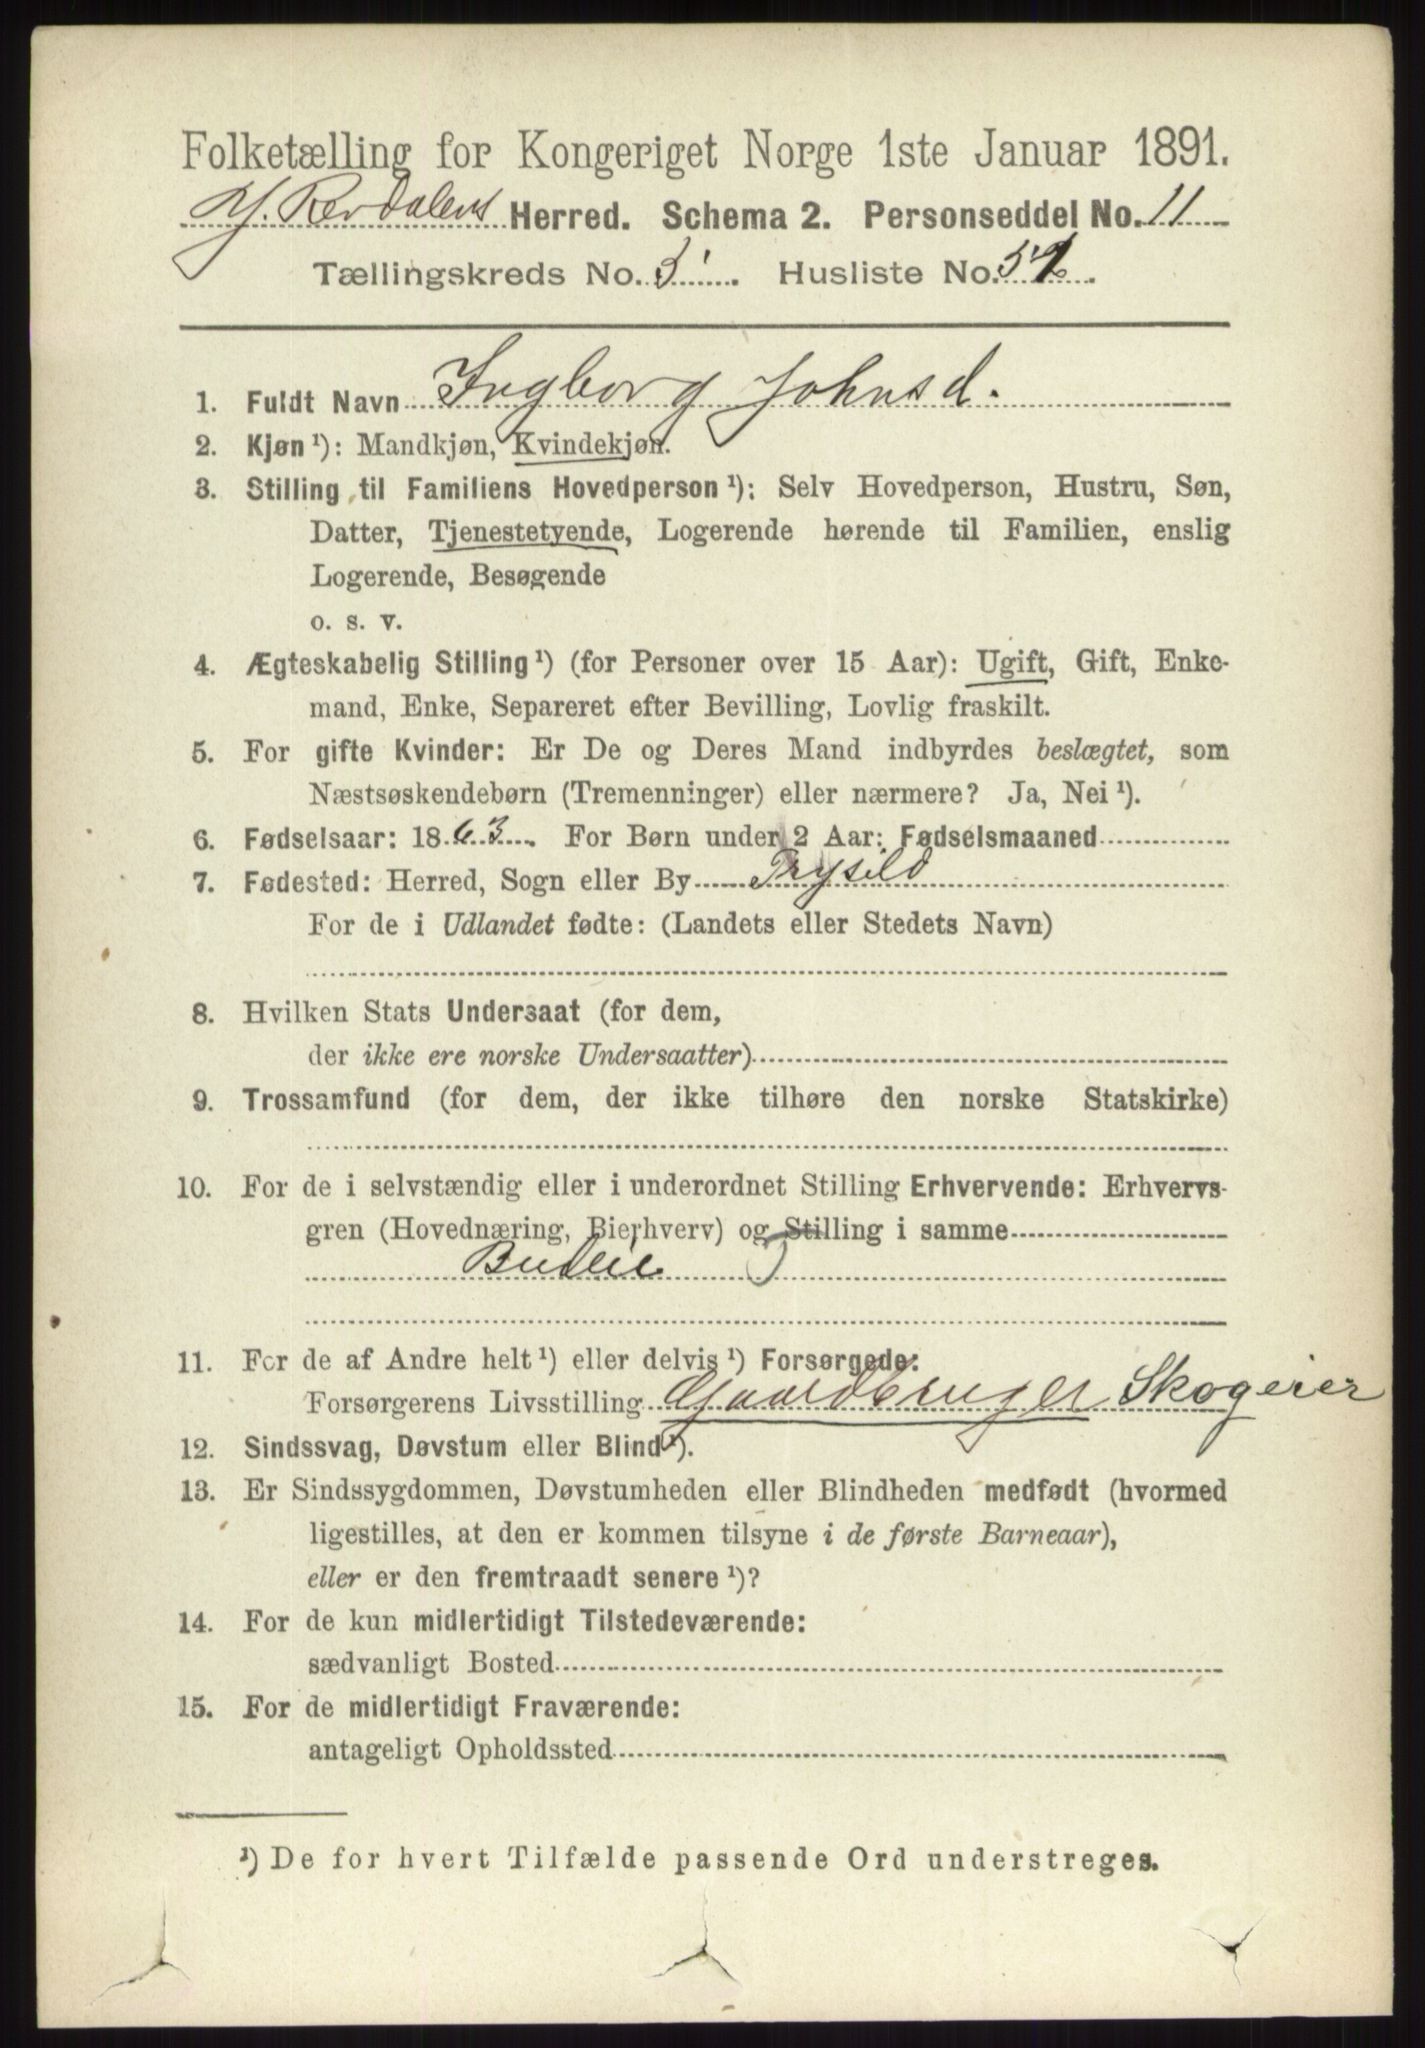 Folketælling for Kongeriget Norge 1ste Januar 1891.
Y. Rendalens Herred. Schema 2. Personseddel No. 11
Tællingskreds No. 5. Husliste No. 52.
1. Fuldt Navn Ingborg Johnsd.
2. Kjøn¹): Mandkjøn, Kvindekjøn.
3. Stilling til Familiens Hovedperson¹): Selv Hovedperson, Hustru, Søn,
Datter, Tjenestetyende, Logerende hørende til Familien, enslig
Logerende, Besøgende
o. s. v.
4. Ægteskabelig Stilling¹) (for Personer over 15 Aar): Ugift, Gift, Enke-
mand, Enke, Separeret efter Bevilling, Lovlig fraskilt.
5. For gifte Kvinder: Er De og Deres Mand indbyrdes beslægtet, som
Næstsøskendebørn (Tremenninger) eller nærmere? Ja, Nei¹).
6. Fødselsaar: 1863. For Børn under 2 Aar: Fødselsmaaned
7. Fødested: Herred, Sogn eller By Trysild
For de i Udlandet fødte: (Landets eller Stedets Navn)
8. Hvilken Stats Undersaat (for dem,
der ikke ere norske Undersaatter)
9. Trossamfund (for dem, der ikke tilhøre den norske Statskirke)
10. For de i selvstændig eller i underordnet Stilling Erhvervende: Erhvervs-
gren (Hovednæring, Bierhverv) og Stilling i samme
Budeie
11. For de af Andre helt¹) eller delvis¹) Forsørgede:
Forsørgerens Livsstilling Gaardbruger Skogeier
12. Sindssvag, Døvstum eller Blind¹).
13. Er Sindssygdommen, Døvstumheden eller Blindheden medfødt (hvormed
ligestilles, at den er kommen tilsyne i de første Barneaar),
eller er den fremtraadt senere¹)?
14. For de kun midlertidigt Tilstedeværende:
sædvanligt Bosted
15. For de midlertidigt Fraværende:
antageligt Opholdssted
¹) De for hvert Tilfælde passende Ord understreges.